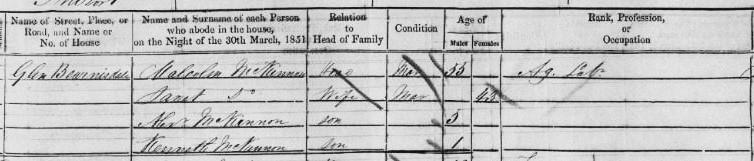 Name of Street, Place, or Road, and Name or No. of House Name and Surname of each Person who abode in the house, on the Night of the 30th March, 1851 Relation to Head of Family Condition Age of Males Females Rank, Profession, or Occupation
Glen Bernisdale Malcolm McKinnon Head Mar 55 Ag. Lab.
Janet Do Wife Mar 43
Alexr McKinnon son 5
Kenneth McKinnon son 1